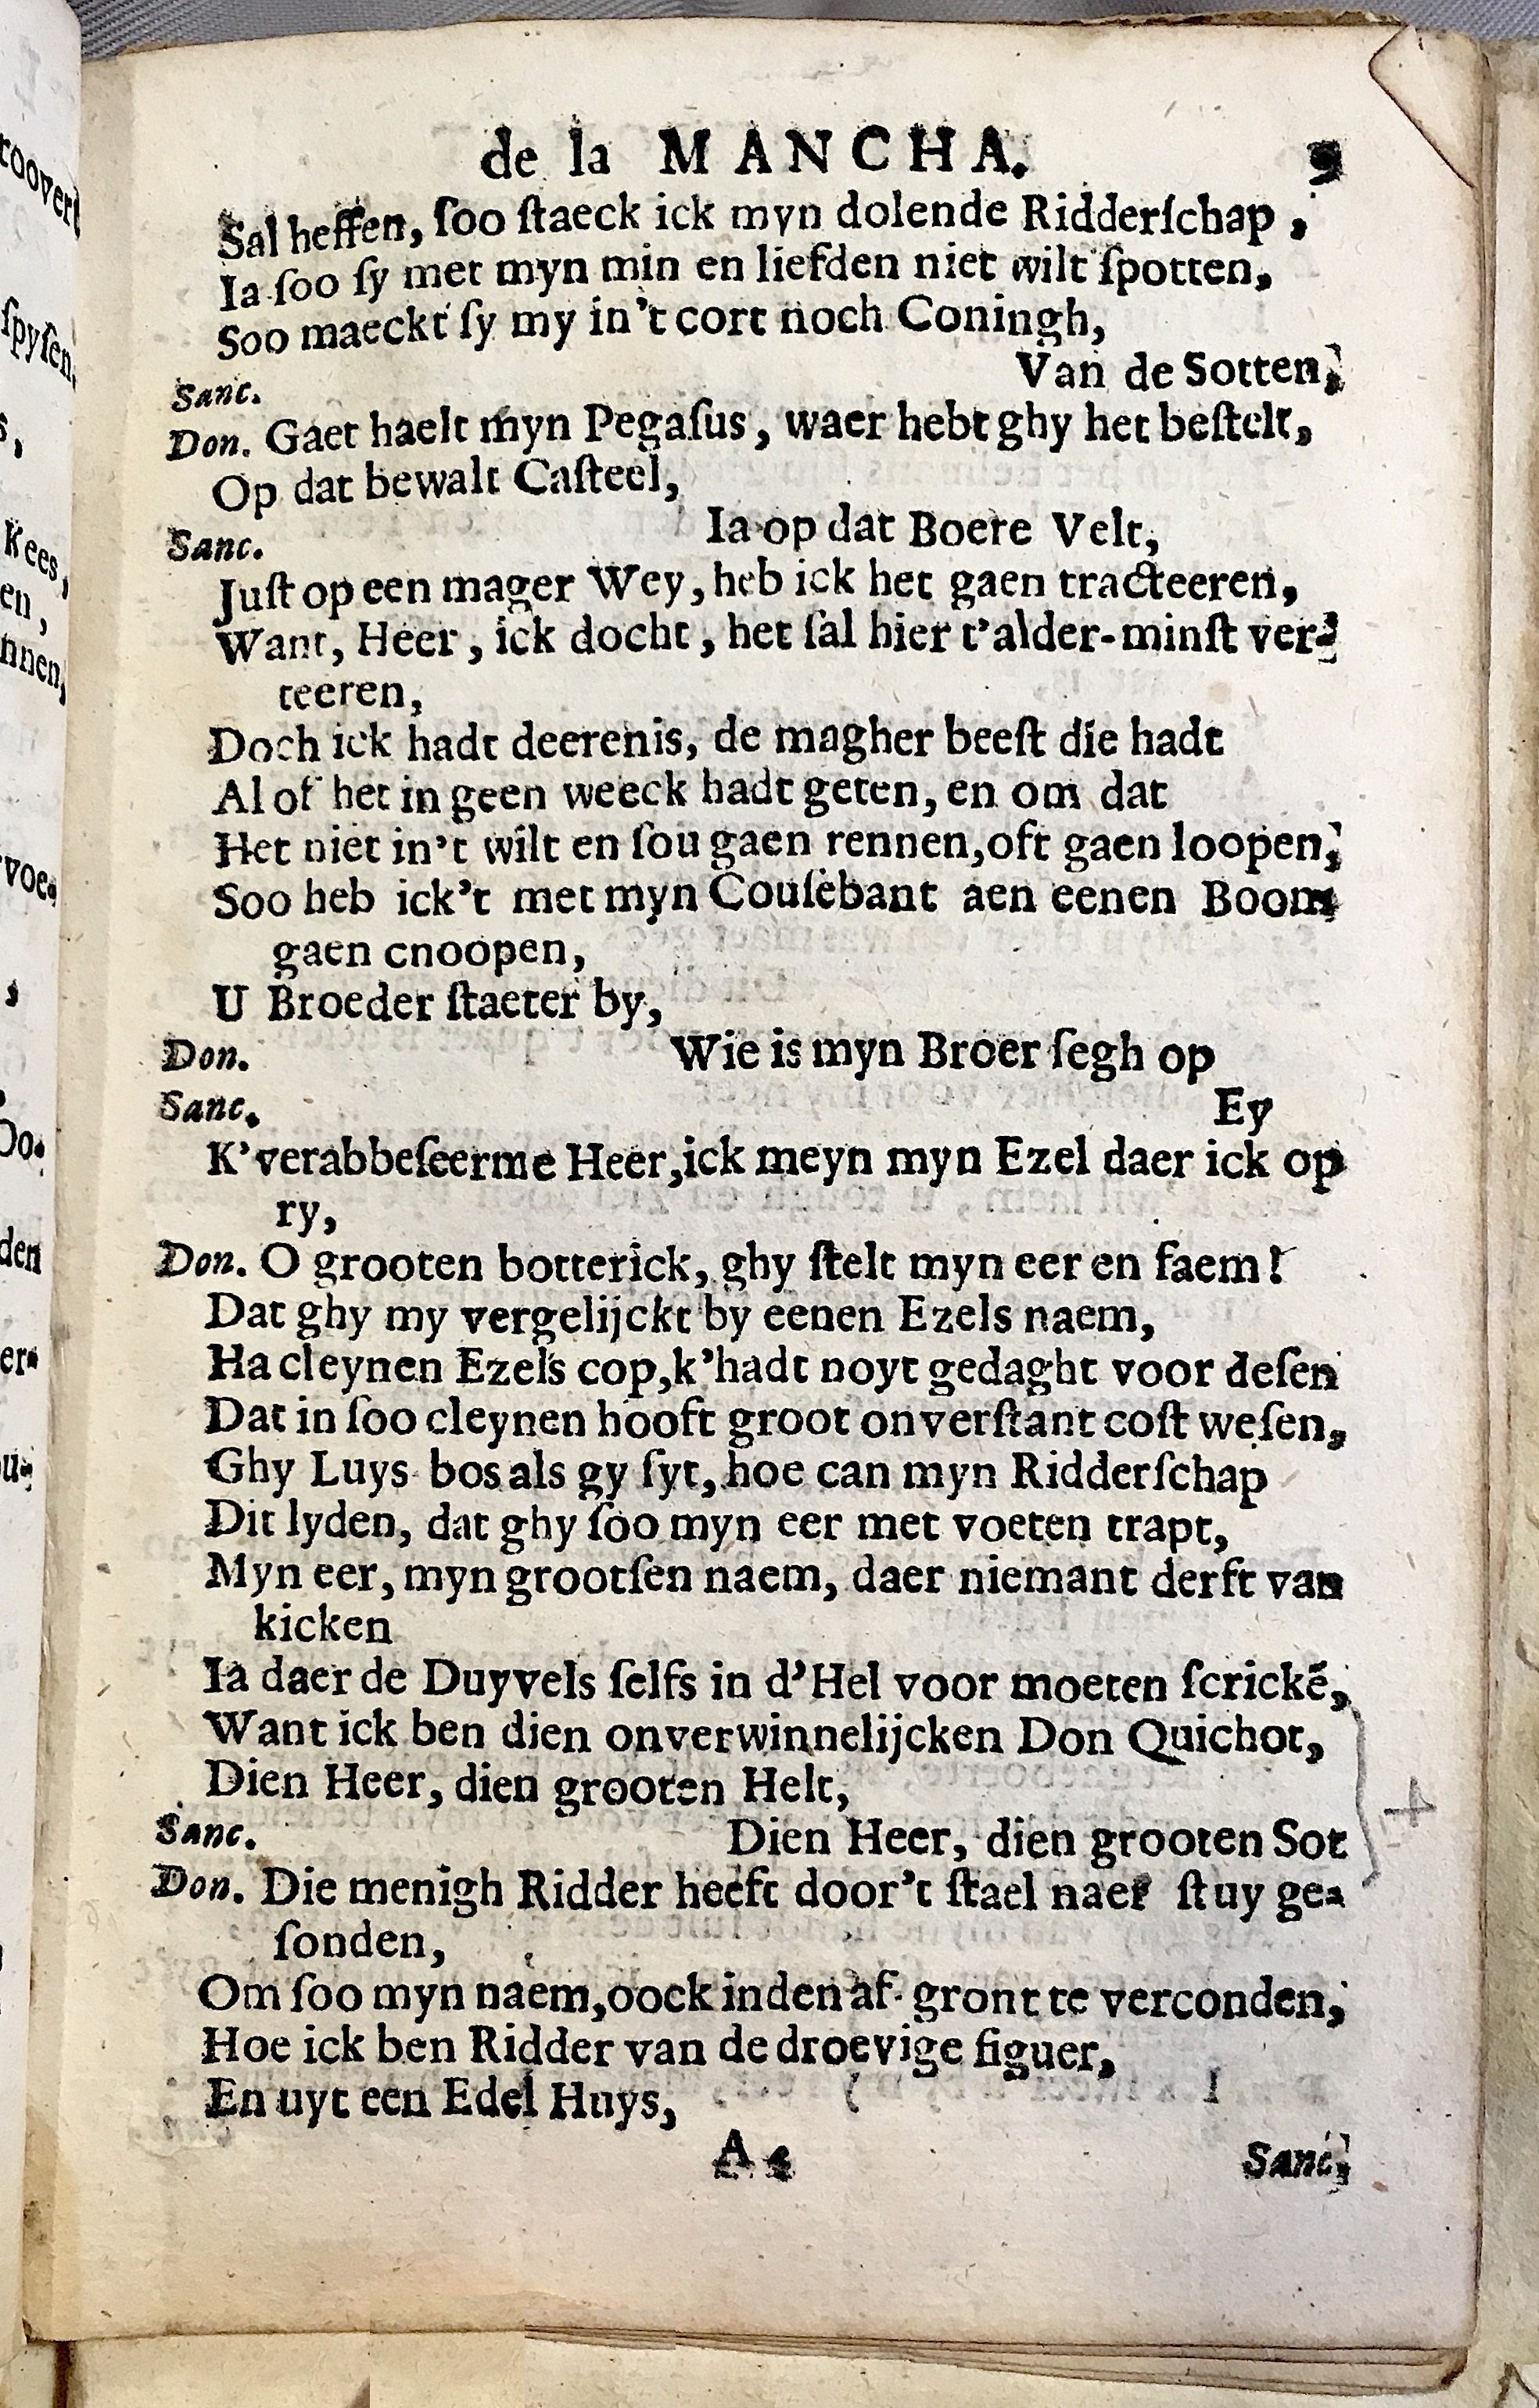 de la MANCHA. 9
Sal heffen, ſoo ſtaeck ick myn dolende Ridderſchap,
Ia ſoo ſy met myn min en liefden niet wilt ſpotten,
Soo maeckt ſy my in't cort noch Coningh,
Van de Sotten,
Sanc.
Don. Gaet haelt myn Pegaſus, waer hebt ghy het beſtelt,
Op dat bewalt Caſteel,
Ia op dat Boere Velt,
Sanc.
Juſt op een mager Wey, heb ick het gaen tracteeren,
Want, Heer, ick docht, het ſal hier t'alder-minſt ver-
teeren,
Doch ick hadt deerenis, de magher beeſt die hadt
Al of het in geen weeck hadt geten, en om dat
Het niet in't wilt en ſou gaen rennen, oft gaen loopen,
Soo heb ick't met myn Couſebant aen eenen Boom
gaen cnoopen,
U Broeder ſtaeter by,
Don. Wie is myn Broer ſegh op
Sanc. Ey
K'verabbeſeerme Heer, ick meyn myn Ezel daer ick op
ry,
Don. O grooten botterick, ghy ſtelt myn eer en faem!
Dat ghy my vergelijckt by eenen Ezels naem,
Ha cleynen Ezels cop, k'hadt noyt gedaght voor deſen
Dat in ſoo cleynen hooft groot onverſtant coſt weſen,
Ghy Luys bos als gy ſyt, hoe can myn Ridderſchap
Dit lyden, dat ghy ſoo myn eer met voeten trapt,
Myn eer, myn grootſen naem, daer niemant derft van
kicken
Ia daer de Duyvels ſelfs in d'Hel voor moeten ſcrickē,
Want ick ben dien onverwinnelijcken Don Quichot,
Dien Heer, dien grooten Helt,
Sanc. Dien Heer, dien grooten Sot
Don. Die menigh Ridder heeft door't ſtael naer ſtuy ge-
ſonden,
Om ſoo myn naem, oock inden af-gront te verconden,
Hoe ick ben Ridder van de droevige figuer,
En uyt een Edel Huys,
A
Sanc,